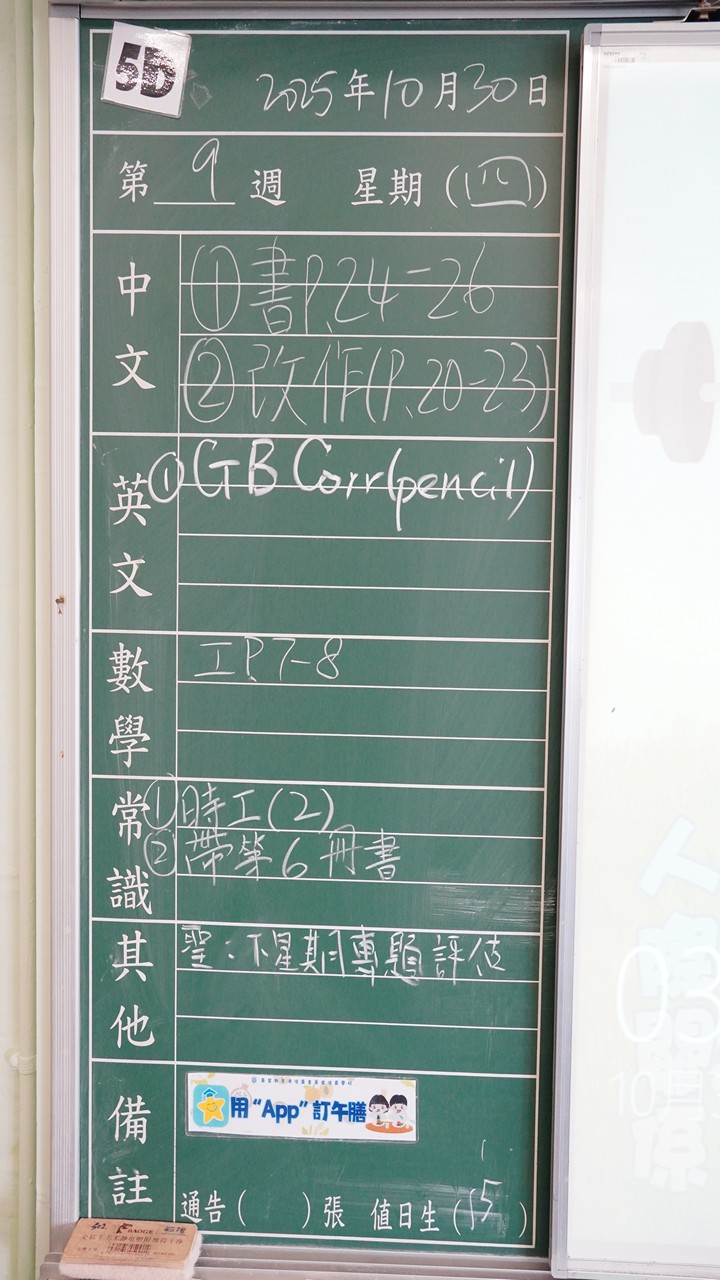 5D
2025年10月30日
第9週 星期(四)
中文
①書P.24-26
②改作(P.20-23)
英文
①GB Corr(pencil)
數學
工P.7-8
常識
①時工(2)
②帶第6冊書
其他
聖:下星期專題評估
備註
用“App”訂午膳
通告( )張 值日生(15)
BADGE
03
10月
人
間
係